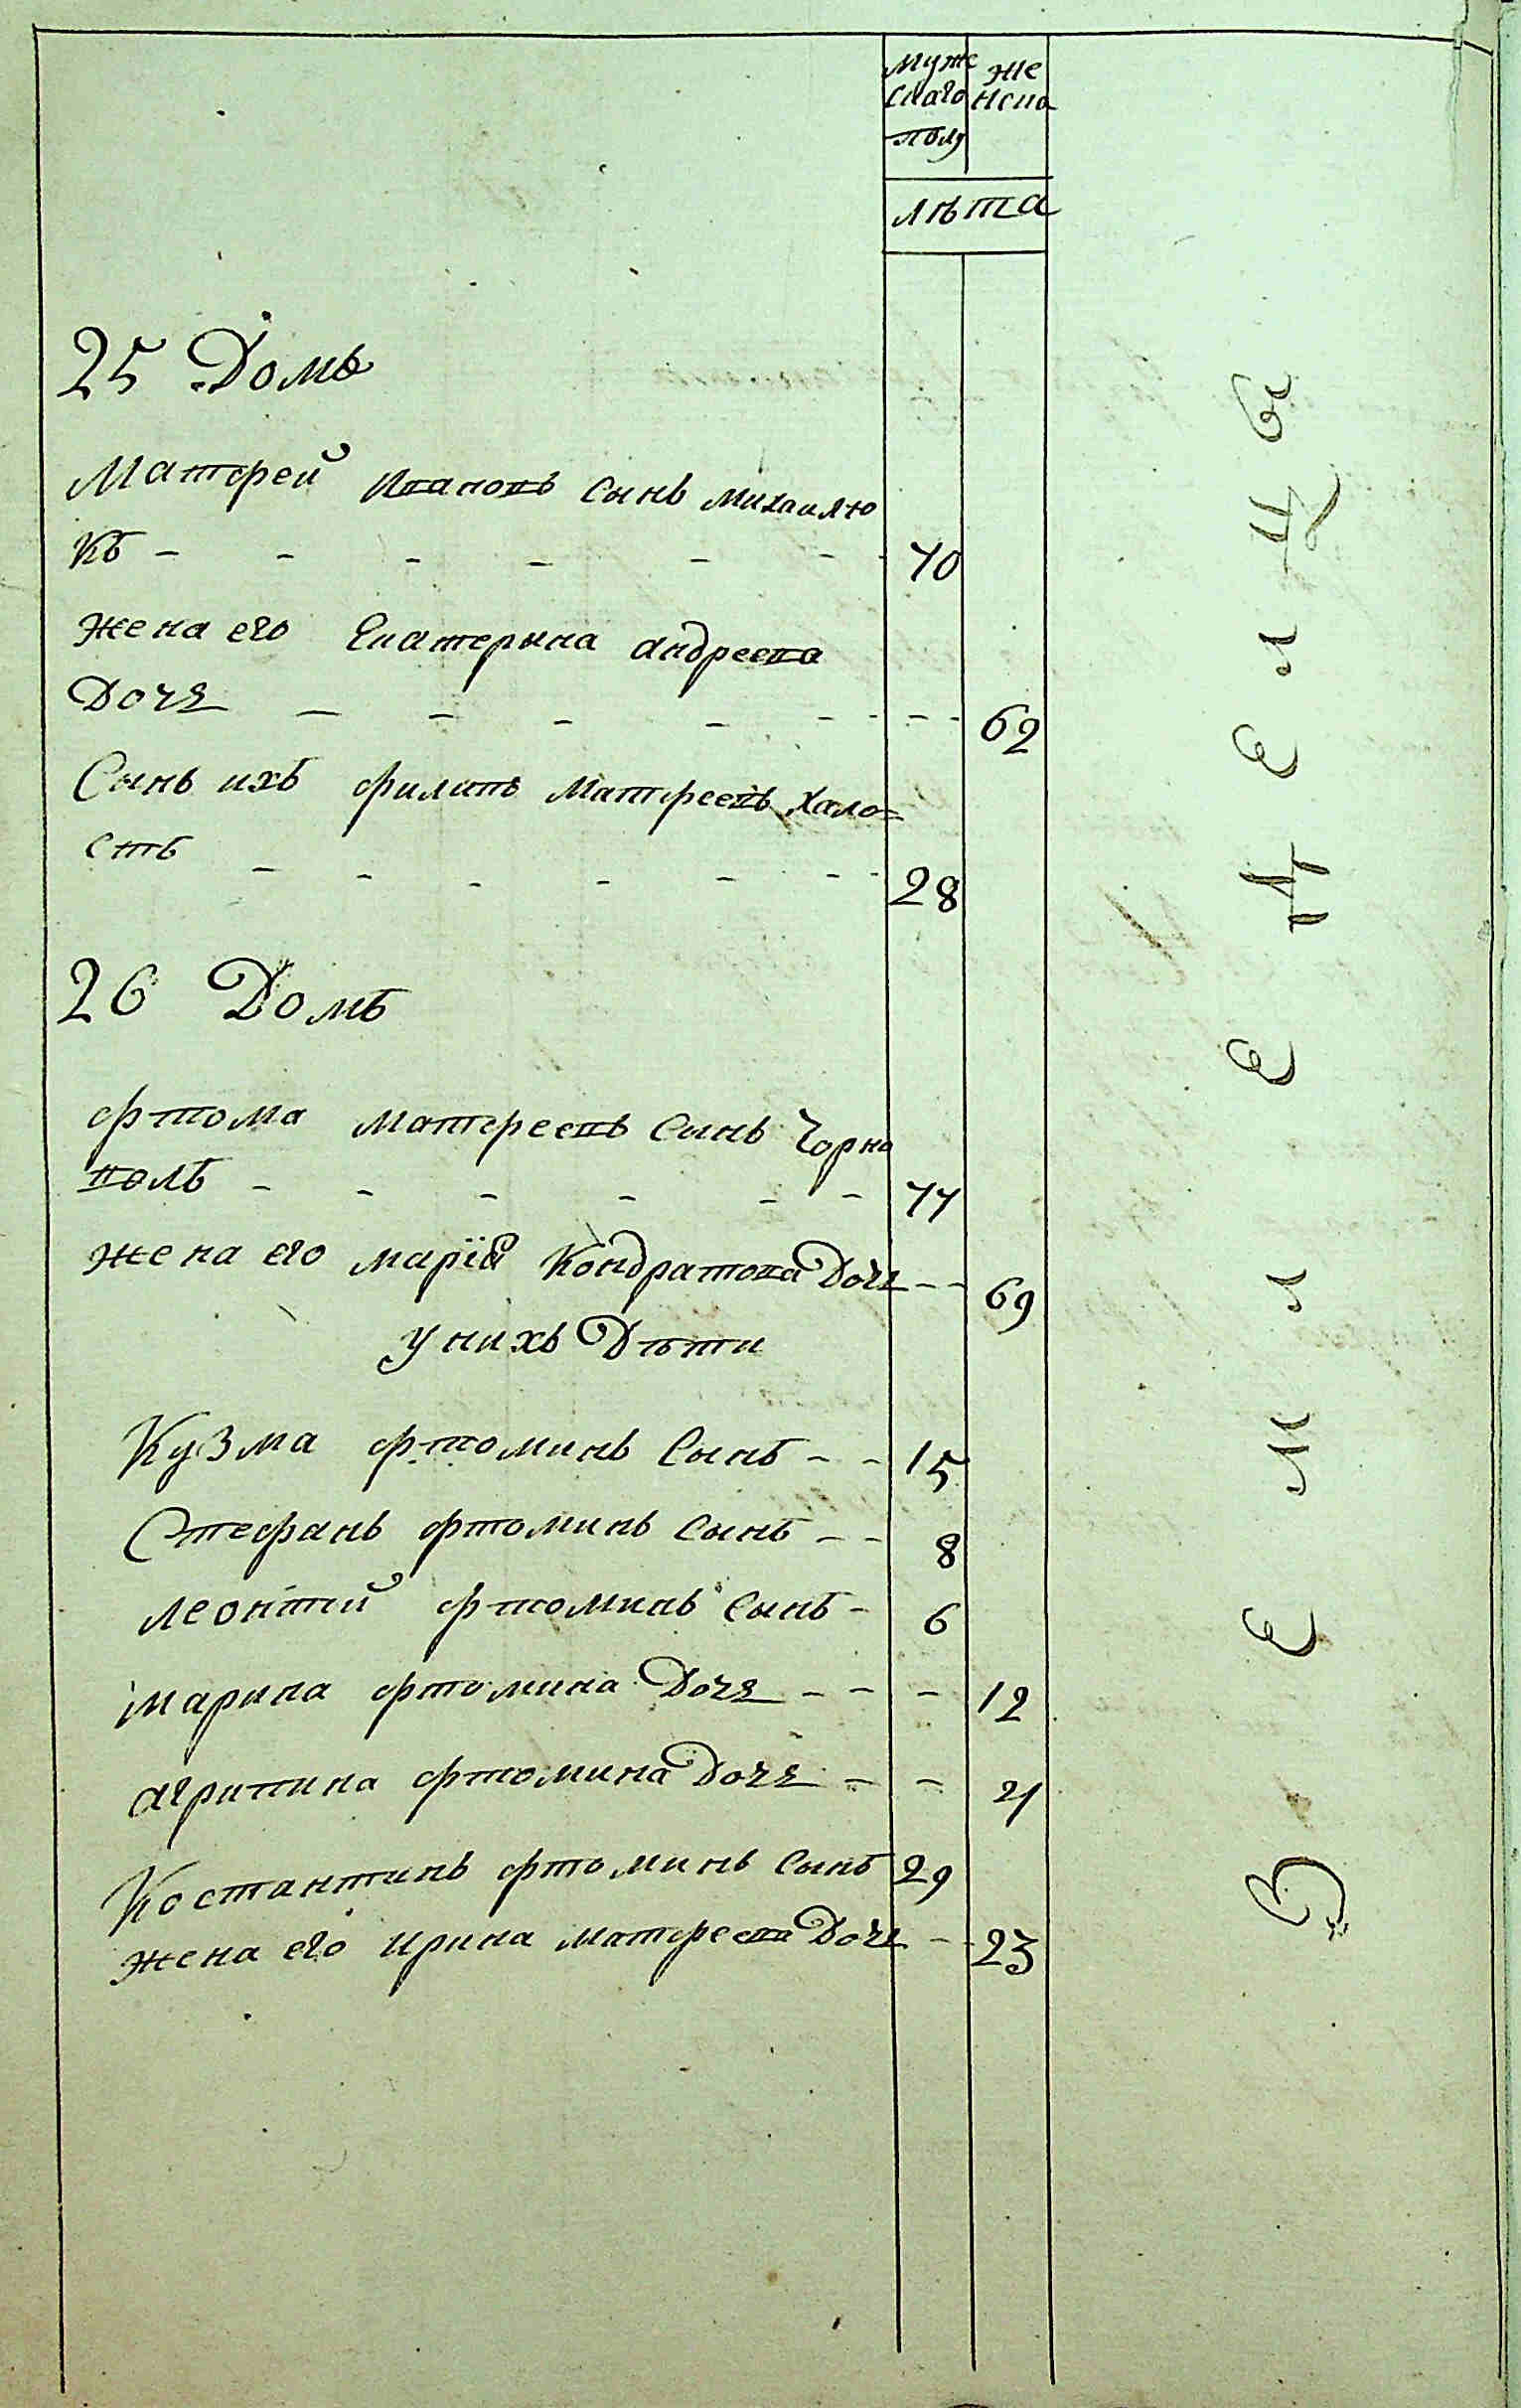 муже
скаго
полу
же
нска
лѣта
25 Домъ
Матфей Ивановъ сынъ михаилю
къ - - - - - - - 70
жена его Екатерына андреева
Дочь - - - - - - - - 62
Сынъ ихъ филипъ Матфеевъ хало=
стъ - - - - - - - 28
26 Домъ
фтома матфеевъ синъ Чорно
волъ - - - - - - 77
жена его маріа Кондратова Дочь - - 69
у нихъ Дѣти
Кузма фтоминъ сынъ - - 15
Стефанъ фтоминъ сынъ - - 8
леонтій фтоминъ сынъ - 6
марина фтомина Дочь - - - 12
агрипина фтомина Дочь - - 21
Костантинъ фтоминъ сынъ 29
жена его ирина матфеева Дочь - - 23
Земледелцы